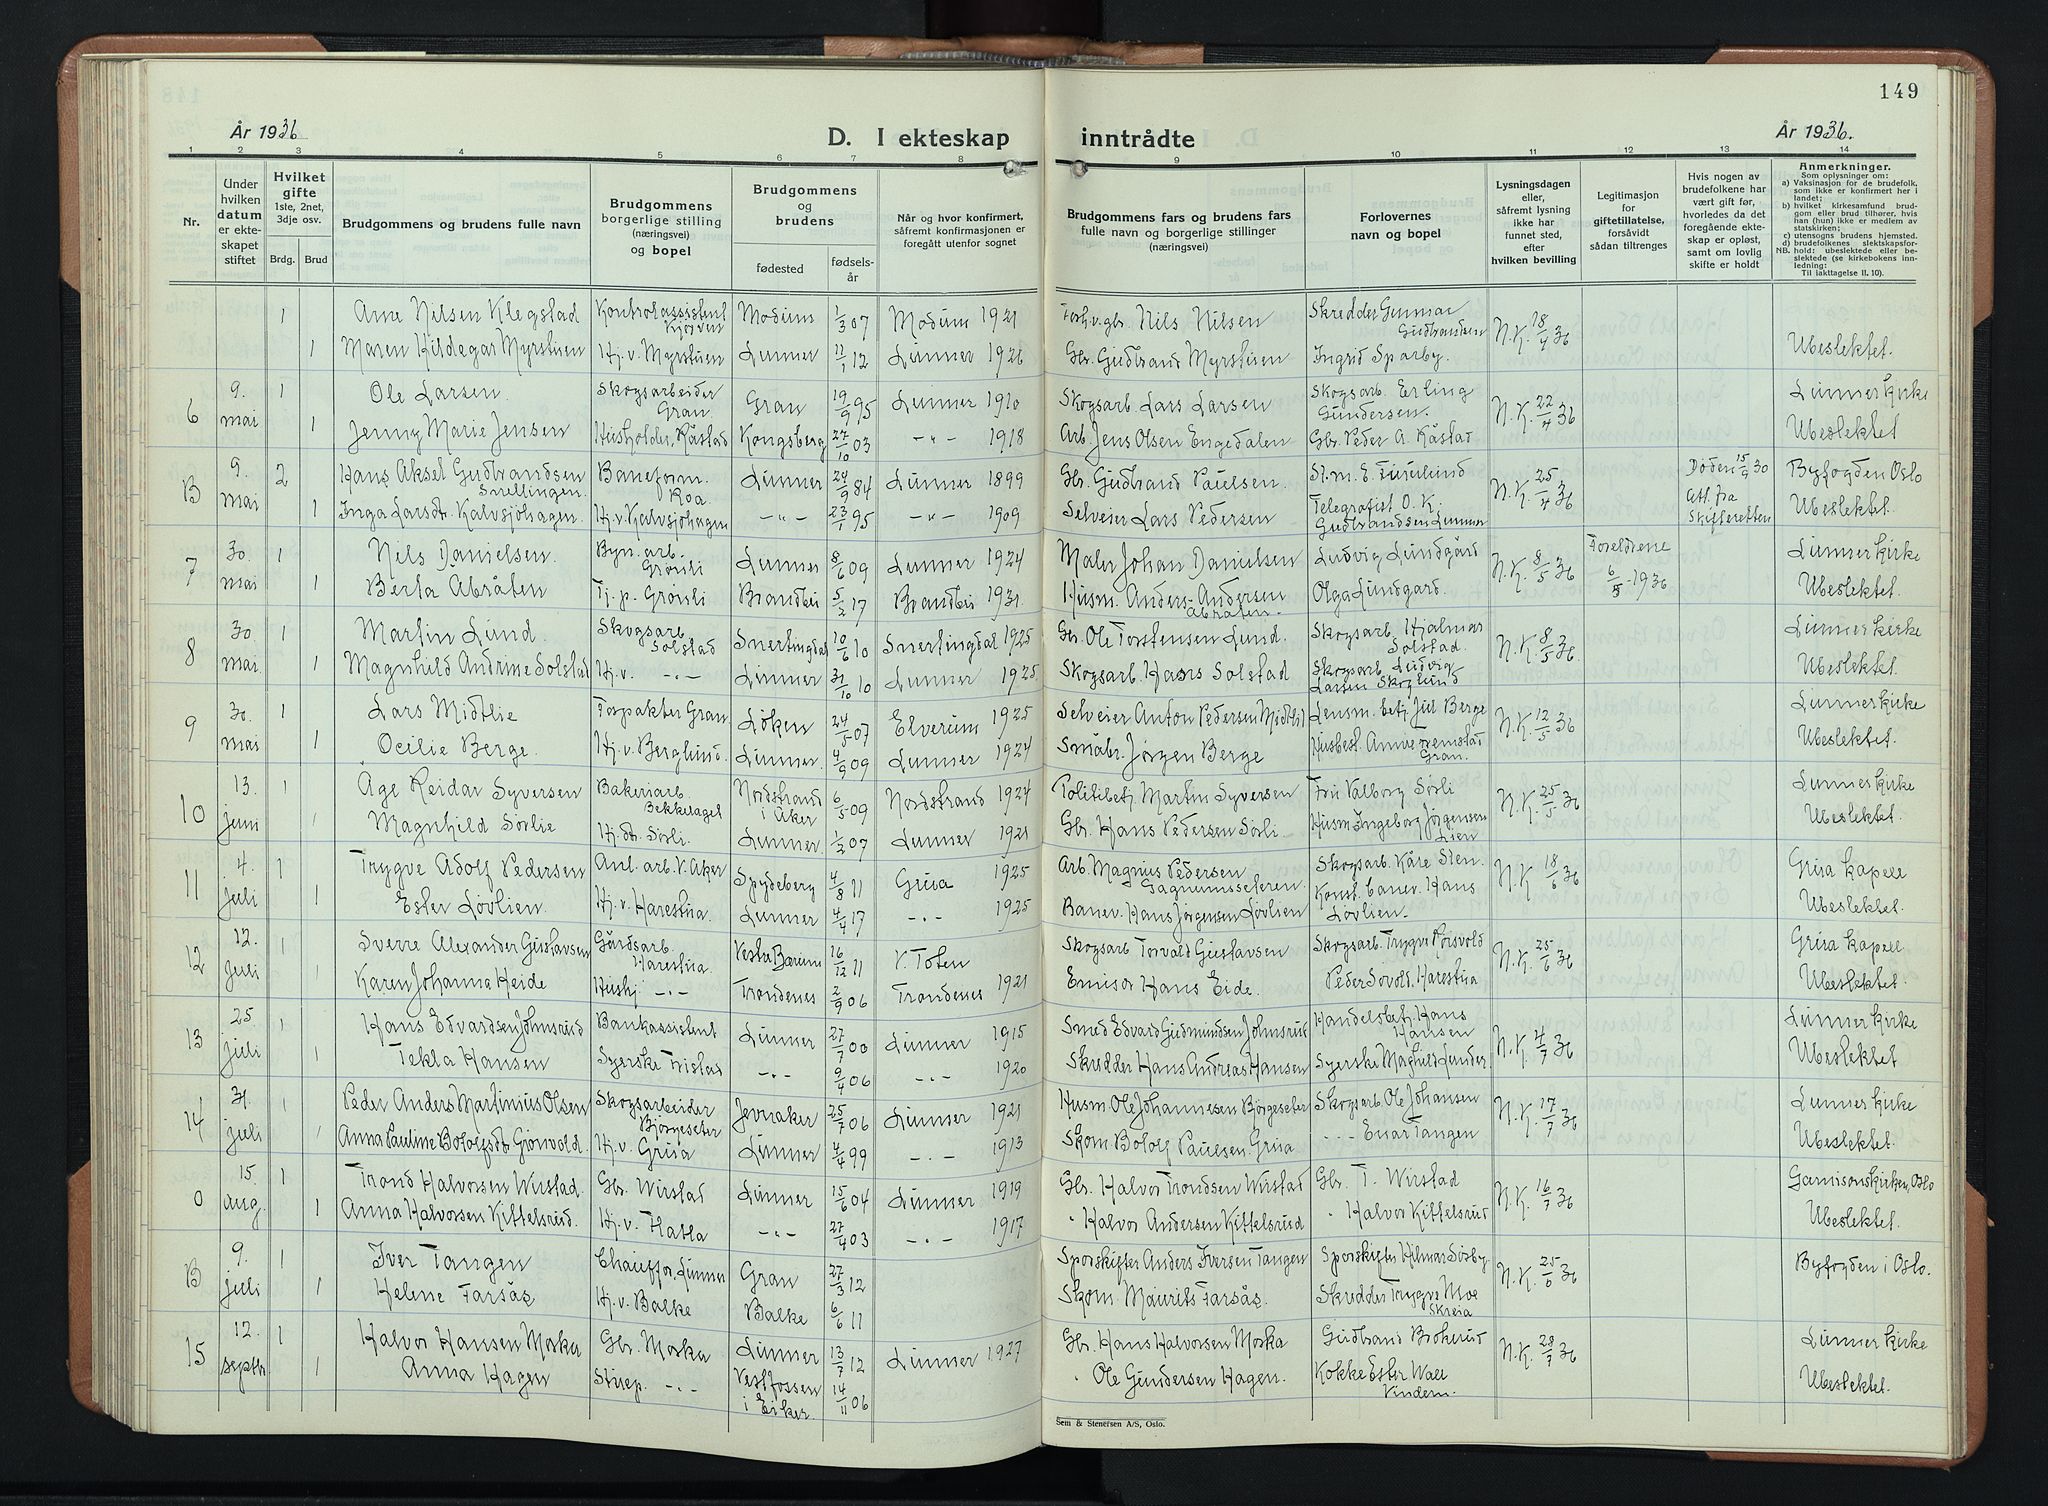 149
År 1936
D. I ekteskap inntrådte
År 1936.
1 2 3 4 5 6 7 8 9 10 11 12 13 14
Nr.
Under hvilken datum er ekteskapet stiftet
Hvilket gifte 1ste, 2net, 3dje osv.
Brdg. Brud
Brudgommens og brudens fulle navn
Brudgommens borgerlige stilling (næringsvei) og bopel
Brudgommens og brudens
fødested
fødselsår
Når og hvor konfirmert, såfremt konfirmasjonen er foregått utenfor sognet
Brudgommens fars og brudens fars fulle navn og borgerlige stillinger (næringsvei)
Forlovernes navn og bopel
Lysningsdagen eller, såfremt lysning ikke har funnet sted, efter hvilken bevilling
Legitimasjon for giftetillatelse, forsåvidt sådan tiltrenges
Hvis nogen av brudefolkene har vært gift før, hvorledes da det foregående ekteskap er opløst, samt om lovlig skifte er holdt
Anmerkninger.
Som oplysninger om:
a) Vaksinasjon for de brudefolk, som ikke er konfirmert her i landet;
b) hvilket kirkesamfund brudgom eller brud tilhører, hvis han (hun) ikke er medlem av statskirken;
c) utensogns brudens hjemsted.
d) brudefolkenes slektskapsforhold: ubeslektede eller beslektede (se kirkebokens innledning:
NB.
Til iakttagelse II. 10).
1 Arne Nilsen Klegstad Kontrolassistent Modum 1/3 07 Modum 1921 Nils Nilsen Skredder Gunnar Gudbrandsen N.K. 18/4 36
1 Maren Hildegar Myrstuen Hj. v. Myrstuen Lunner 11/1 12 Lunner 1926 Gbr. Gudbrand Myrstuen Ingrid Sparby. Ubeslektet.
6 9. mai 1 Ole Larsen Skogsarbeider Gran. Gran 19/9 95 Lunner 1910 Skogsarb. Lars Larsen Skogsarb. Erling Gundersen. N.K. 22/4 36 Lunner kirke
1 Jenny Marie Jensen Husholder, Kåstad Kongsberg 27/10 03 -"- 1918 Arb. Jens Olsen Engedalen Gbr. Peder A. Kåstad Ubeslektet
B 9. mai 2 Hans Aksel Gudbrandsen Snellingen. Baneform. Roa Lunner 24/9 84 Lunner 1899 Gb. Gudbrand Paulsen St.m. E. Furulund N.K. 25/4 36 Døden 15/9 30 Att. fra Skifteretten Byfogden Oslo
1 Inga Larsdt. Kalvsjøhagen. Hj. v. Kalvsjøhagen -"- 23/1 95 -"- 1909 Selveier Lars Pedersen Telegrafist O. K. Gudbrandsen Lunner Ubeslektet.
7 30. mai 1 Nils Danielsen Byn. arb. Grönli Lunner 8/6 09 Lunner 1924 Maler Johan Danielsen Ludvig Lundgård N.K. 8/5 36 Foreldrene 6/5-1936 Lunner kirke
1 Berta Abråten Tj. p. Grönli Brandbu 5/2 17 Brandbu 1931 Husm. Anders Andersen Abråten. Olga Lundgård Ubeslektet.
8 30. mai 1 Martin Lund. Skogsarb. Solstad Snertingdal 10/6 10 Snertingdal 1925 Gbr. Ole Torstensen Lund. Skogsarb. Hjalmar Solstad. N.K. 8/5 36 Lunner kirke
1 Magnhild Andrine Solstad Hj. v. -"- Lunner 31/10 10 Lunner 1925 Skogsarb. Hans Solstad Skogsarb. Ludvig Larsen Skoglund Ubeslektet.
9 30. mai 1 Lars Midtlie Forpakter Gran. Löken 24/5 07 Elverum 1925 Selveier Anton Pedersen Midtlie Lensm. betj. Juul Berge N.K. 12/5 36 Lunner kirke
1 Ocilie Berge. Hj. v. Berglund. Lunner. 4/9 09 Lunner 1924 Småbr. Jørgen Berge Husbest. Annie Tremstad Gran. Ubeslektet.
10 13. juni 1 Åge Reidar Syversen Bakeriarb. Bekkelaget Nordstrand i Aker 6/5 09 Nordstrand 1924 Politibetj. Martin Syversen Fru Valborg Sörli N.K. 25/5 36 Lunner kirke
1 Magnhild Sörlie Hj. dt. Sörli. Lunner. 1/2 07 Lunner 1921 Gbr. Hans Pedersen Sörli Husm Ingeborg Jörgensen Lien Ubeslektet.
11 4. juli 1 Trygve Adolf Pedersen Anl. arb. V. Aker Spydeberg 4/8 11 Grua 1925 Arb. Magnus Pedersen Skogsarb. Kåre Sten. N.K. 18/6 36 Grua kapell
1 Ester Lövlien. Hj. v. Harestua. Lunner 4/4 17 -"- 1925 Banev. Hans Jörgensen Lövlien Konst. banev. Hans Lövlien. Ubeslektet.
12 12. juli 1 Sverre Alexander Gustavsen Gårdsarb. Harestua. Vestre Bærum 16/12 11 V. Toten Skogsarb Torvald Gustavsen Skogsarb. Trygve N.K. 25/6 36 Grua kapell
1 Karen Johanna Heide Hushj -"- Trondenes 2/9 06 Trondenes 1921 Emisör Hans Eide. Peder Sovold. Harestua Ubeslektet.
13 25. juli 1 Hans Edvardsen Johnsrud Bankassistent Lunner 27/7 00 Lunner 1915 Smed Edvard Gudmundsen Johnsrud Handelsbetj. Hans Hansen N.K. 4/7 36 Lunner kirke
1 Tekla Hansen Syerske Tristad -"- 9/4 06 -"- 1920 Skredder Hans Andreas Hansen Syerske Maghild Lunder Ubeslektet.
14 31. juli 1 Peder Anders Martinius Olsen Skogsarbeider Bjørgeseter Jevnaker 25/7 06 Lunner 1921 Husm. Ole Johannesen Börgeseter Skogsarb. Ole Johansen N.K. 17/7 36 Lunner kirke
1 Anna Pauline Bololfsdt Grönvold. Hj. v. Grua Lunner 4/4 99 -"- 1913 Skom. Bololf Paulsen Grua -"- Einar Tangen Ubeslektet.
0 15. aug. 1 Trond Halvorsen Wirstad. Gbr. Wirstad Lunner 15/6 04 Lunner 1919 Gbr. Halvor Trondsen Wirstad Gbr. T. Wirstad N.K. 16/7 36 Garnisonskirken, Oslo
1 Anna Halvorsen Kittelsrud. Hj. v. Flatla -"- 27/4 03 -"- 1917 " Halvor Andersen Kittelsrud " Halvor Kittelsrud Ubeslektet.
B 9. juli 1 Iver Tangen Chauffør, Lunner Gran 27/3 12 Sporskifter Anders Iversen Tangen Sporskifter Hilmar Sörby N.K. 25/6 36 Byfogden i Oslo.
1 Helene Farsås Hj. v. Balke Balke 6/6 11 Skom. Maurits Farsås. Skredder Trygve Moe Skreia
15 12. septbr. 1 Halvor Hansen Morka Gbr. Morka Lunner 13/7 12 Lunner 1927 Gbr. Hans Halvorsen Morka Gudbrand Brokerud N.K. 28/7 36 Lunner kirke
1 Anna Hagen Stuep. -"- Vestfossen i Eiker. 14/11 06 " Ole Gundersen Hagen. Kokke Ester Wall Vindern. Ubeslektet.
Sem & Stenersen A/S, Oslo.